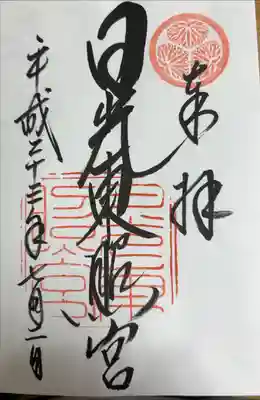 奉拝
日光東照宮
平成二十三年七月一日